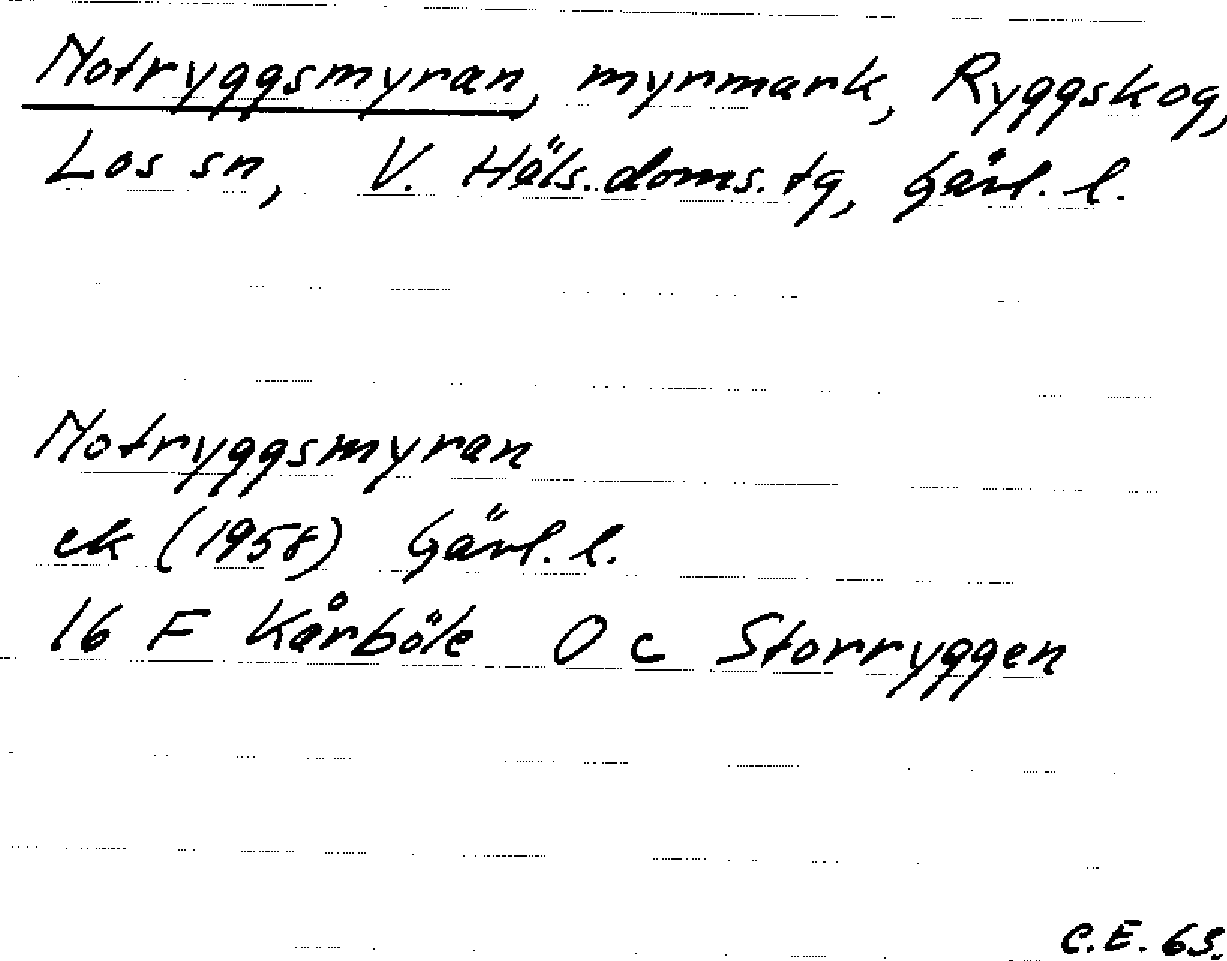 Notryggsmyran, myrmark, Ryggskog,
Los sn, V. Häls. doms. tg, Gävl. l.
Notryggsmyran
ek (1958) Gävl. l.
16 F Kårböle O c Storryggen
C.E. 63.